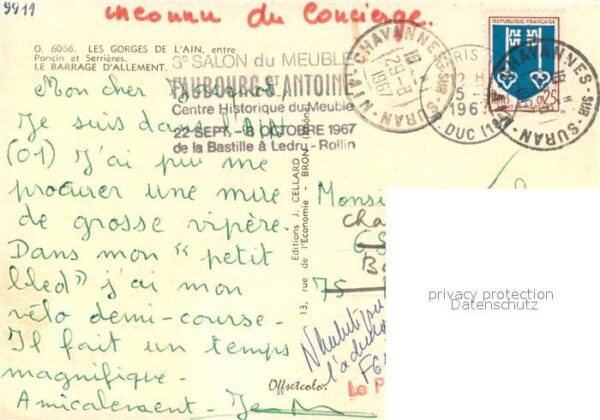 9911
inconnu du Concierge.
O. 6056. LES GORGES DE L'AIN, entre
Poncin et Serrières.
LE BARRAGE D'ALLEMENT.
3e SALON du MEUBLE
FAUBOURG St ANTOINE
Centre Historique du Meuble
22 SEPT. - 8 OCTOBRE 1967
de la Bastille à Ledru-Rollin
CHAVANNES-SUR-SURAN-AIN
29-8
1967
REPUBLIQUE FRANÇAISE
0,25
CHAVANNES-SUR-SURAN
Mon cher
Je suis dans l'AIN
(01) J'ai pu me
procurer une mue
de grosse vipère.
Dans mon "petit
bled" j'ai mon
vélo demi-course.
Il fait un temps
magnifique.
Amicalement - Je
Editions J. CELLARD
13, rue de l'Economie - BRON (Rhône)
Offsetcolor
Monsi
75
N'habite
l'adre
privacy protection
Datenschutz